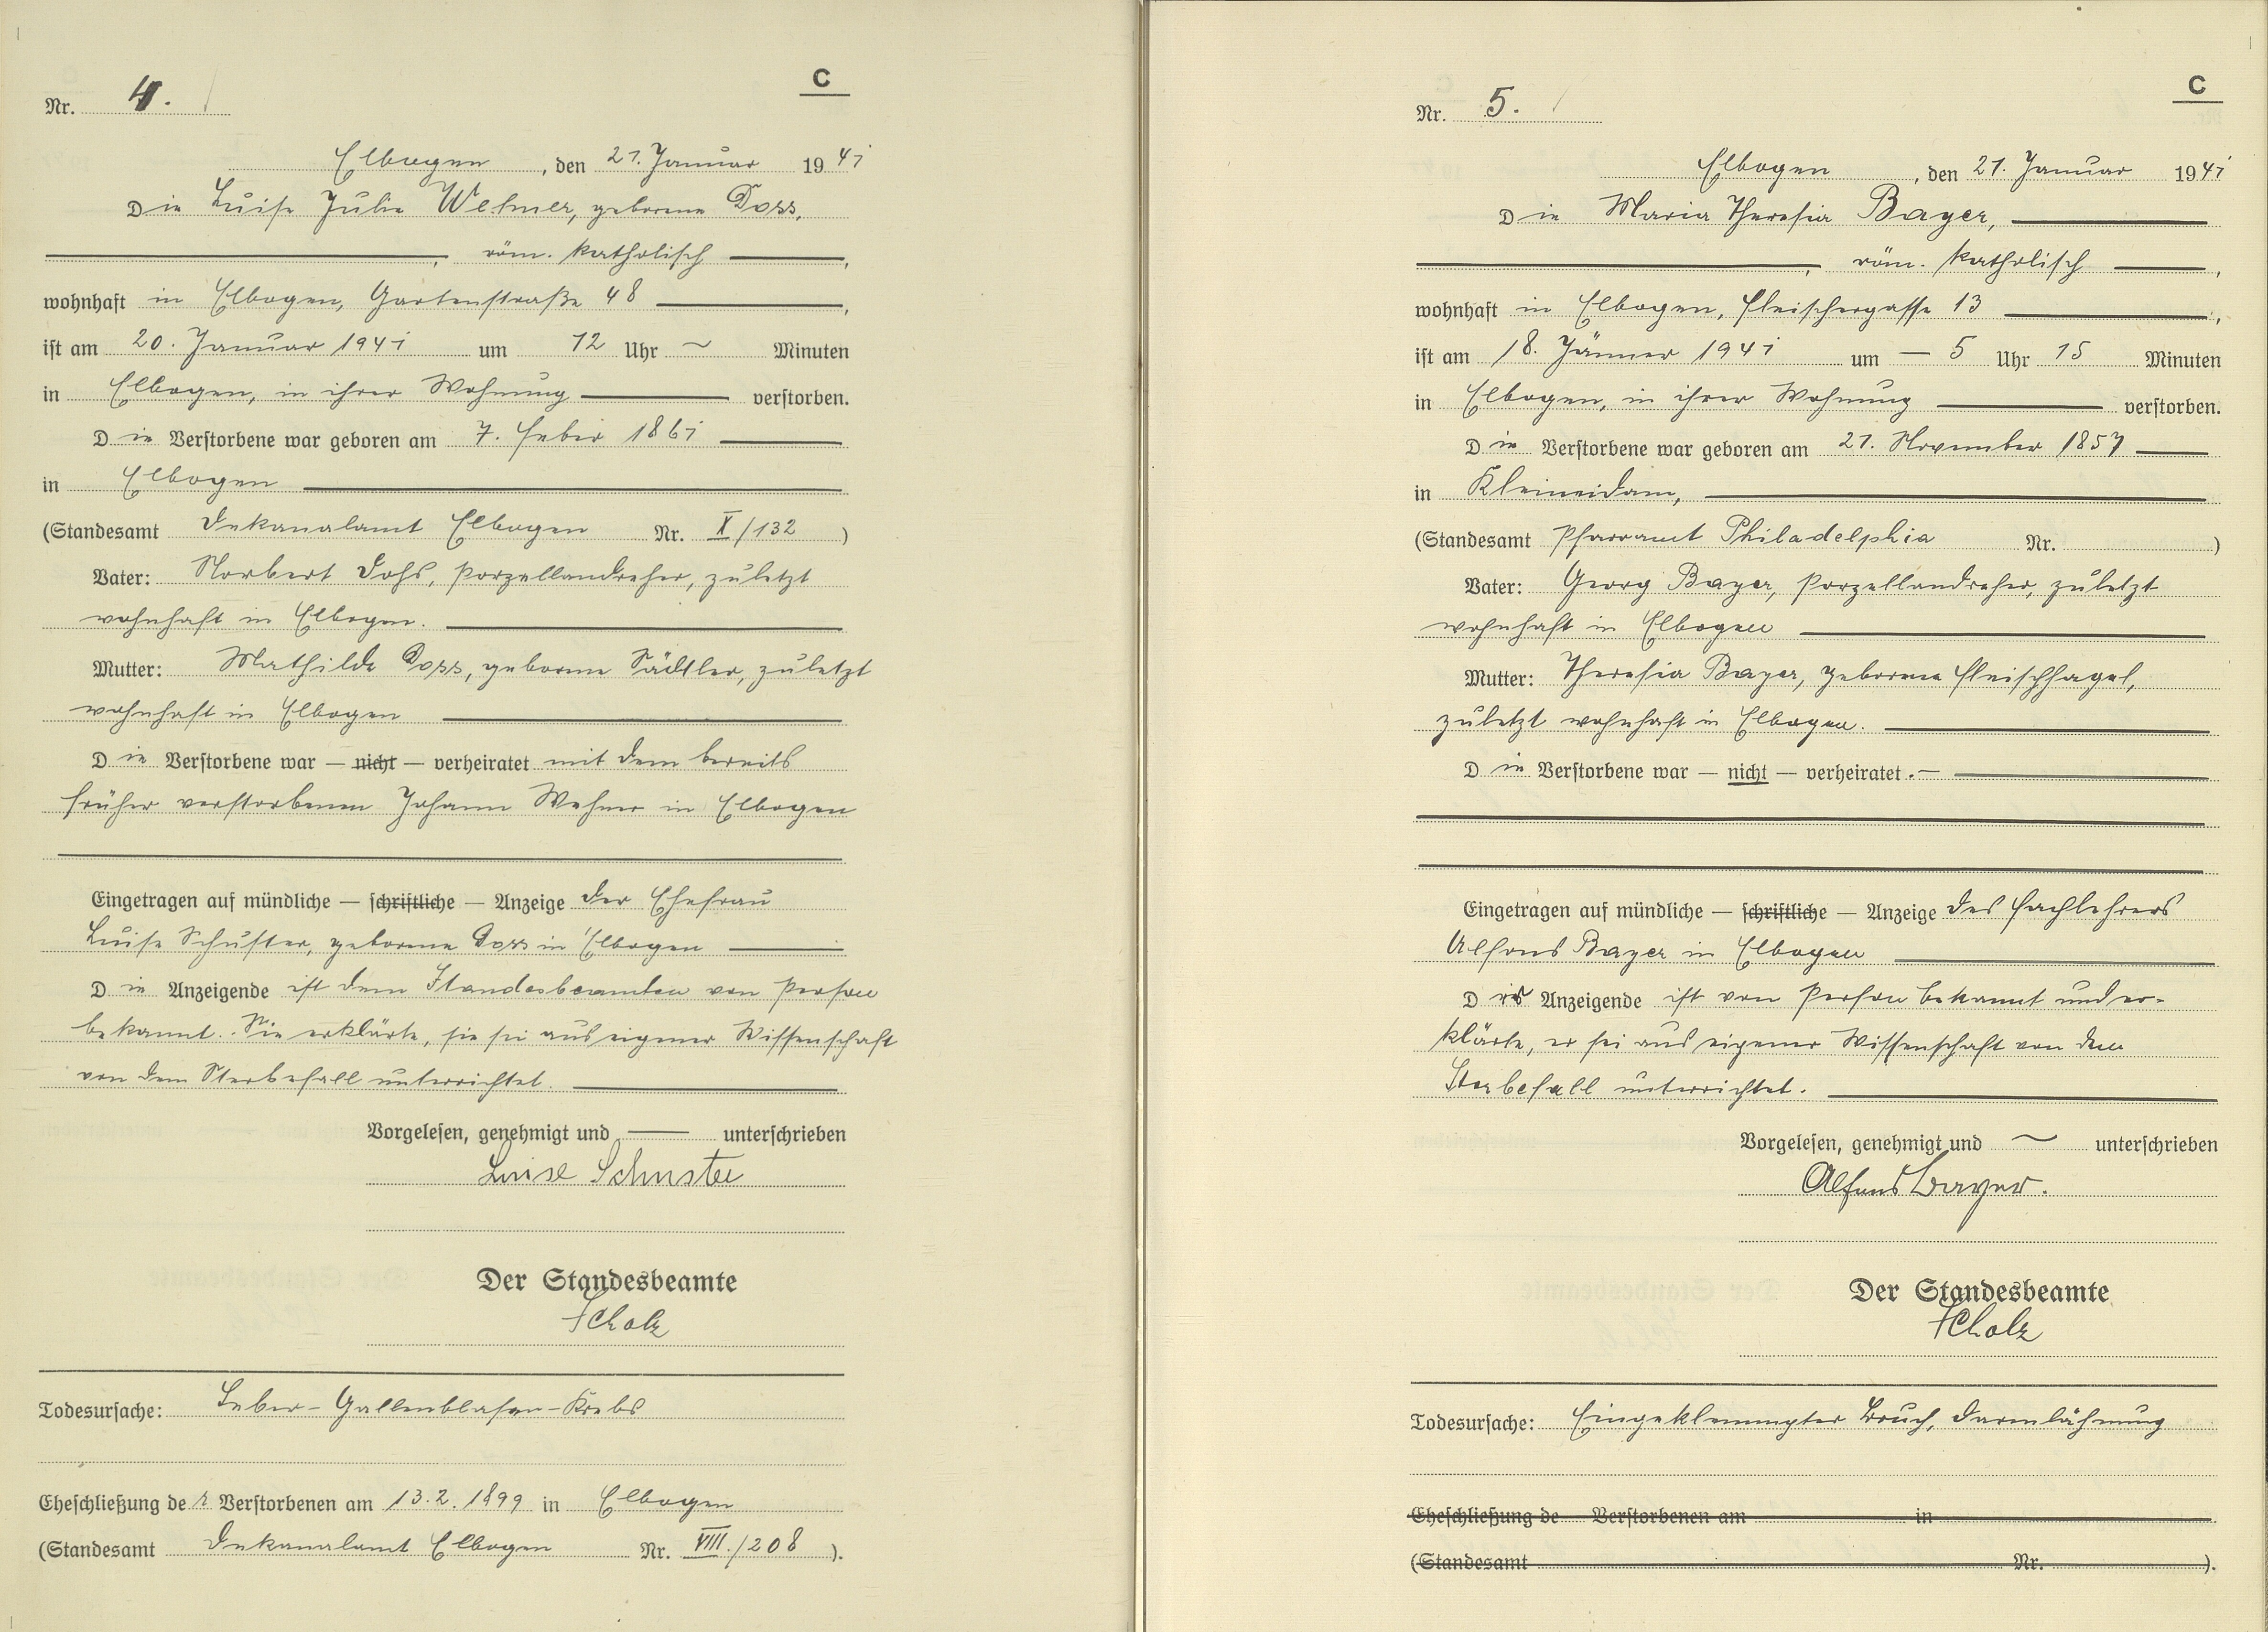 C
Nr. 4.
Elbogen, den 21. Januar 1941
Die Luise Julie Wehner, geborene Doss,
röm. katholisch,
wohnhaft in Elbogen, Gartenstraße 48,
ist am 20. Januar 1941 um 12 Uhr ~ Minuten
in Elbogen, in ihrer Wohnung verstorben.
Die Verstorbene war geboren am 7. Feber 1861
in Elbogen
(Standesamt Dekanalamt Elbogen Nr. X/132)
Vater: Norbert Dohs, Porzellandreher, zuletzt
wohnhaft in Elbogen.
Mutter: Mathilde Doss, geborene zuletzt
wohnhaft in Elbogen
Die Verstorbene war — nicht — verheiratet mit dem bereits
früher verstorbenen Johann Wehner in Elbogen
Eingetragen auf mündliche — schriftliche — Anzeige der Ehefrau
Luise Schuster, geborene Doss in Elbogen
Die Anzeigende ist dem Standesbeamten von Person
bekannt. Sie erklärte, sie sei aus eigener Wissenschaft
von dem Sterbefall unterrichtet.
Vorgelesen, genehmigt und — unterschrieben
Luise Schuster
Der Standesbeamte
Scholz
Todesursache: Leber-Gallenblasen-Krebs
Eheschließung der Verstorbenen am 13.2.1899 in Elbogen
(Standesamt Dekanalamt Elbogen Nr. VIII./208).
C
Nr. 5.
Elbogen, den 21. Januar 1941
Die Maria Theresia Bayer,
röm. katholisch,
wohnhaft in Elbogen, Fleischergasse 13,
ist am 18. Jänner 1941 um — 5 Uhr 15 Minuten
in Elbogen, in ihrer Wohnung verstorben.
Die Verstorbene war geboren am 21. November 1857
in Kleineidam,
(Standesamt Pfarramt Philadelphia Nr. )
Vater: Georg Bayer, Porzellandreher, zuletzt
wohnhaft in Elbogen
Mutter: Theresia Bayer, geborene Fleischhagel,
zuletzt wohnhaft in Elbogen.
Die Verstorbene war — nicht — verheiratet.—
Eingetragen auf mündliche — schriftliche — Anzeige des Fachlehrers
Alfons Bayer in Elbogen
Der Anzeigende ist von Person bekannt und er-
klärte, er sei aus eigener Wissenschaft von dem
Sterbefall unterrichtet.
Vorgelesen, genehmigt und ~ unterschrieben
Alfons Bayer.
Der Standesbeamte
Scholz
Todesursache: Eingeklemmpter Bruch, Darmlähmung
Eheschließung de Verstorbenen am in
(Standesamt Nr. ).